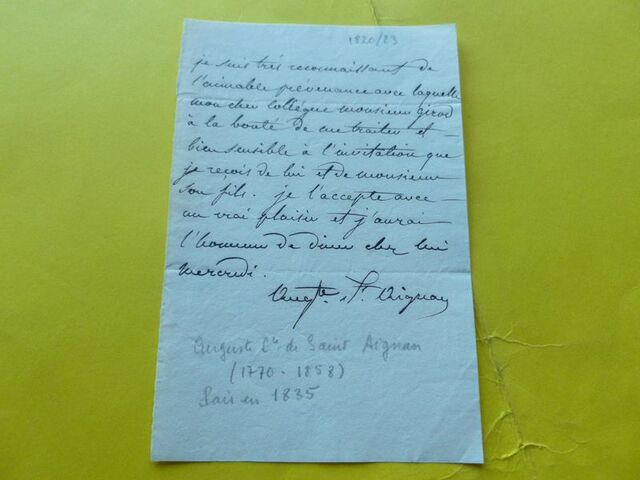 1820/23
je suis très reconnaissant de
l'aimable prévenance avec laquelle
mon cher collègue monsieur girod
à la bonté de me traiter et
bien sensible à l'invitation que
je reçois de lui et de monsieur
son fils. je l'accepte avec
un vrai plaisir et j'aurai
l'honneur de diner chez lui
mercredi.
Augte St Aignan
Auguste Cte de Saint Aignan
(1770 - 1858)
Pair en 1835